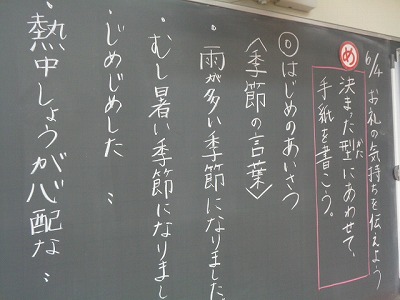 6/4 お礼の気持ちを伝えよう
め 決まった型にあわせて、
がた
手紙を書こう。
◎はじめのあいさつ
〈季節の言葉〉
・雨が多い季節になりました
・むし暑い季節になりまし
・じめじめした 〃
・熱中しょうが心配な〃